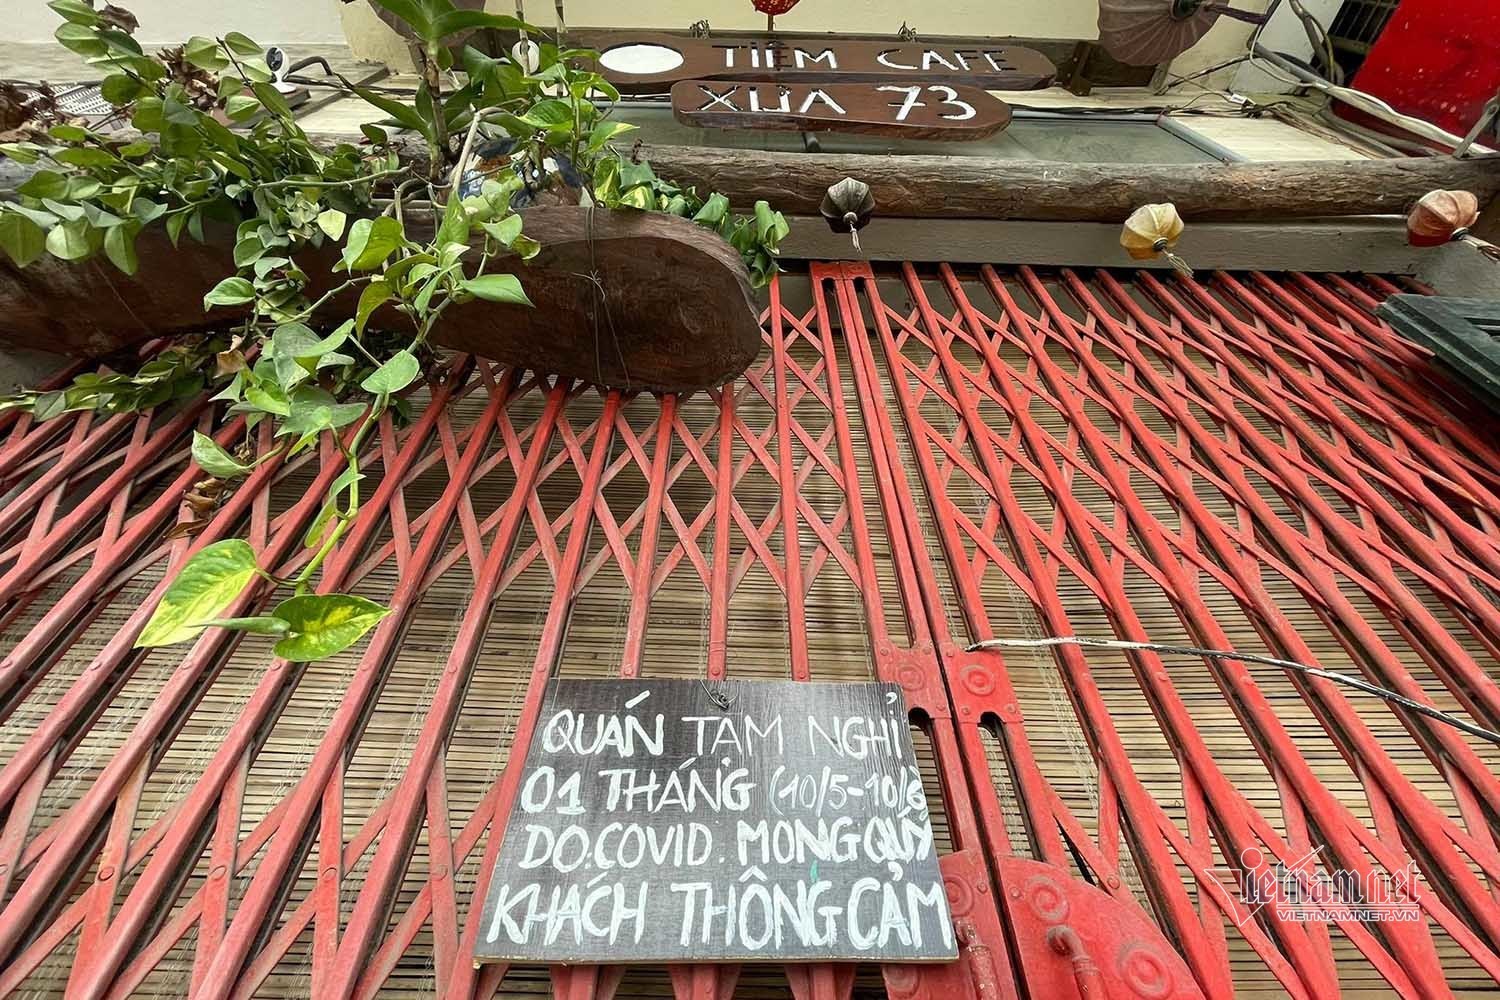 TIỆM CAFE
XƯA 73
QUÁN TẠM NGHỈ
01 THÁNG (10/5-10/6
DO.COVID. MONG QUÝ
KHÁCH THÔNG CẢM
Vietnamnet
VIETNAMNET.VN